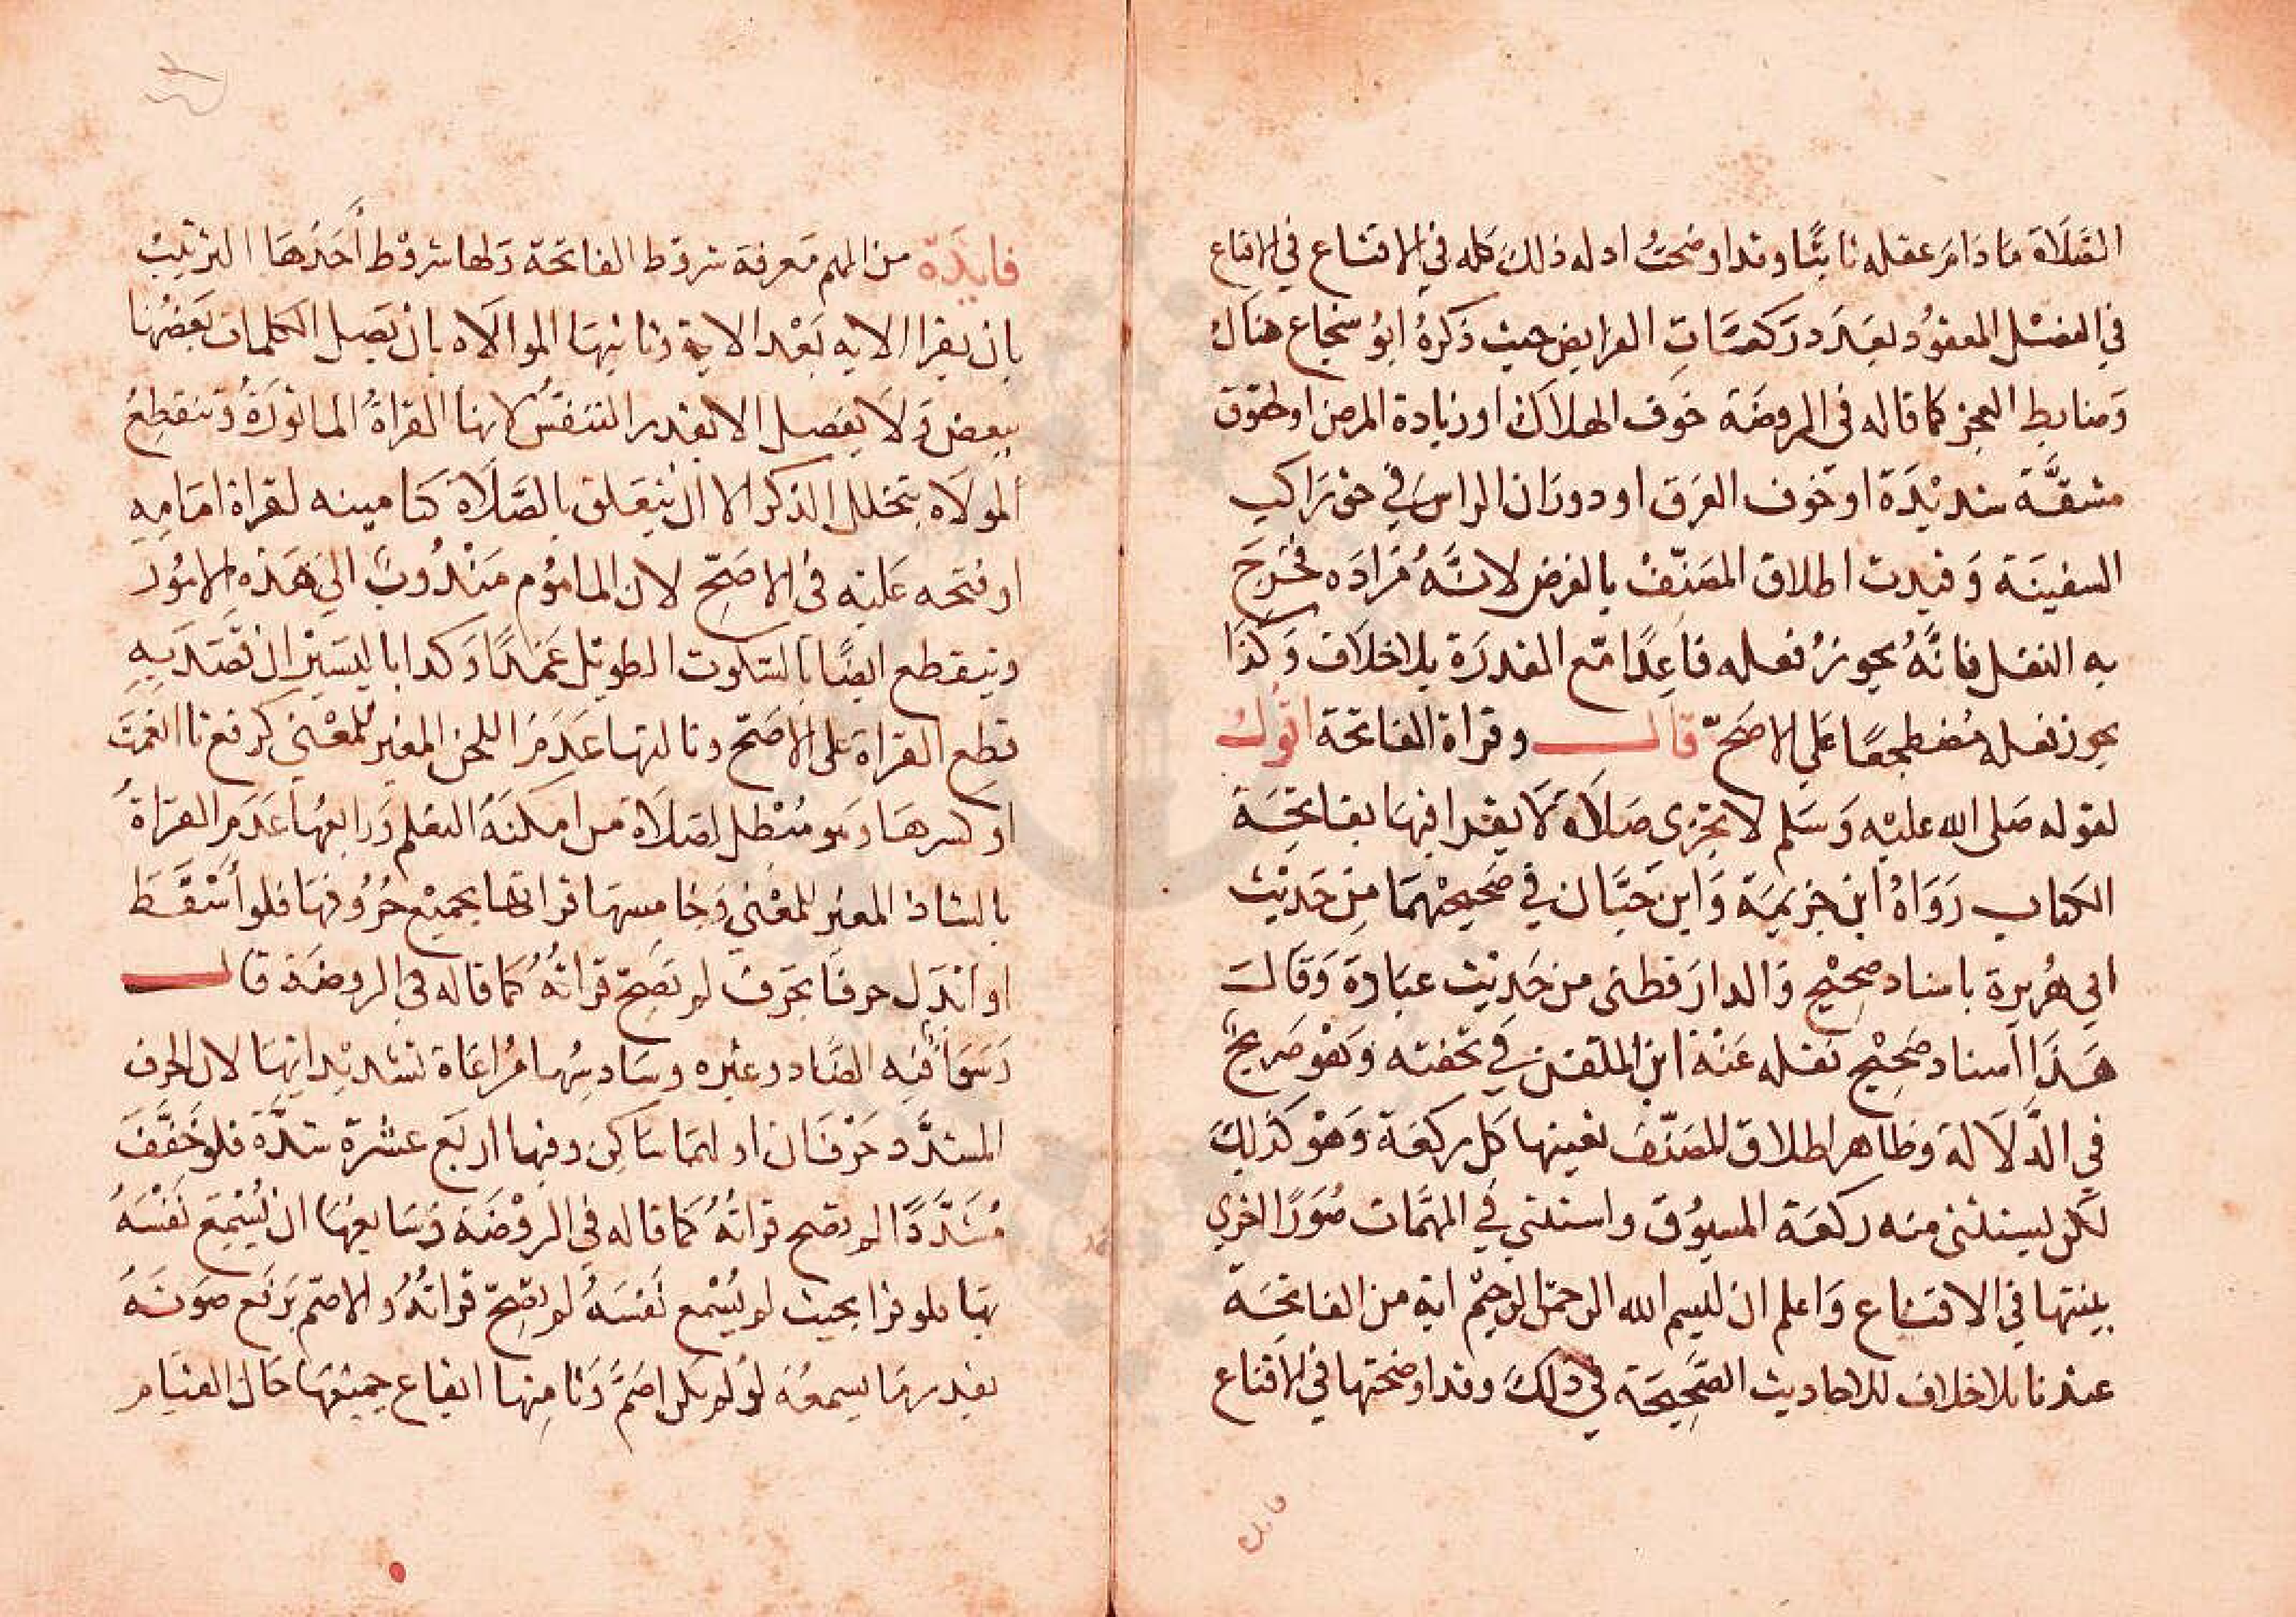 الصَّلَاة مَا دَامَ عقله ثابتًا وقد اوضحتُ ادله ذلكَ كله في الاقناع في الاقناع
في الفصْل المعقوُد لعَدَد رَكعَاتِ الفرايض حيث ذكرهُ ابُو شجاع هناك
وَضابط العجز كما قاله في الروضَة خوف الهلاك او زيادة المرض او لحوق
مشقَّة شديْدَة او خَوف الغرَق او دورَان الراس في حق رَاكب
السفينَة وَقيدت اطلاق المصَنّفُ بالفرض لانَّهُ مُرَادَه فخرَجَ
به النفل فانَّهُ يجوزُ فعله قاعِدًا مَع القدرَة بلا خلاف وَكذَا
يجوز نفله مُضطجعًا عَلي الاصَحّ قال وقراة الفاتحَة اقوُل
لقوله صَلى الله عليْه وَسَلم لا تجزى صَلَاة لَا يقرا فيهَا بفاتحَة
الكتاب رَوَاهُ ابْن خزيمَة وَابن حَبَّان في صَحيحْهمَا مِن حَديْث
ابي هُريرة باسناد صَحِيْح وَالدارَقطنى من حَديْث عبَادة وَقَالَ
هَذَا اسناد صَحِيْح نقله عَنْهُ ابن الملقن في تحفته وَهْو صَريحٌ
في الدَّلَالة وظاهر اطلاق المصَنّفَ تعينها كل ركعَة وَهْو كذلكَ
لكن يستثنى منه ركعَة المسبوُق واستثني في المهمَّات صُوَرًا اخري
بينتها في الاقناع وَاعلم ان بسم الله الرحمَن الرحِيْم اية من الفاتحَة
عندنا بلا خلاف للاحاديث الصَّحِيحَة في ذلكَ وقد اوضحتها في الاقناع
فايدَة
فايدَة من المهم مَعرفة شروُط الفاتحَة وَلها شروْط أحَدُهَا الترتيبُ
بان يقرا الايه بَعْد الاية وثانيهَا الموالَاه بان يَصِل الكلمات بَعضُهَا
ببعض وَلَا يفصل الا بقدر التنفسُ لانها القراةُ الماثورَةُ وتنقطِعُ
الموَلَاه بتخلل الذكر الا ان يتعَلق بالصَّلَاة كتامينه لقراة امَامِهِ
او فتحه عَليْه في الاصَحّ لان الماموُم مَنْدُوبٌ الي هَذه الامُوْر
وينقطع ايضًا بالسّكوت الطويْل عَمْدًا وَكدا باليَسَيْر ان قصَد بِهِ
قطع القراة على الاصَح وثالثها عَدَمُ اللحن المغير للمعْنَي كرفع تا انعَمتَ
او كسرهَا وهو مُبْطل لصَلَاة مَن امكنَهُ التعَلم وَرابعُهَا عَدَم القرَاةُ
بالشاذ المغير للمعْني وَخامسهَا قراتها بجميْع حُرُوفهَا فلو أسْقَطَ
او ابْدَل حرفًا بحَرف لم تصِحّ قراتُهُ كما قاله في الروضَة قال
وَسَوا فيْه الضَّاد وغيْره وسَادسُها مُراعَاة تشديْداتهَا لان الحرف
المشدَّد حَرْفَان اولهمَا سَاكن وفيها اربَع عشرة شدَّة فلو خفّفَ
مُشَدَّدًا لم تصح قراتُهُ كما قاله في الروْضَة وَسَابعُهَا ان يُسْمِعَ نَفْسَهُ
بهَا فلو قرا بحيث لم يُسْمع نَفْسَهُ لم تصِحّ قراتُهُ والاصَم يَرفع صَوتَهُ
بقدر مَا يسمعُهُ لَو لم يكن اصَمَّ وَثامِنها ايقاع جميْعهَا حَال القيَام